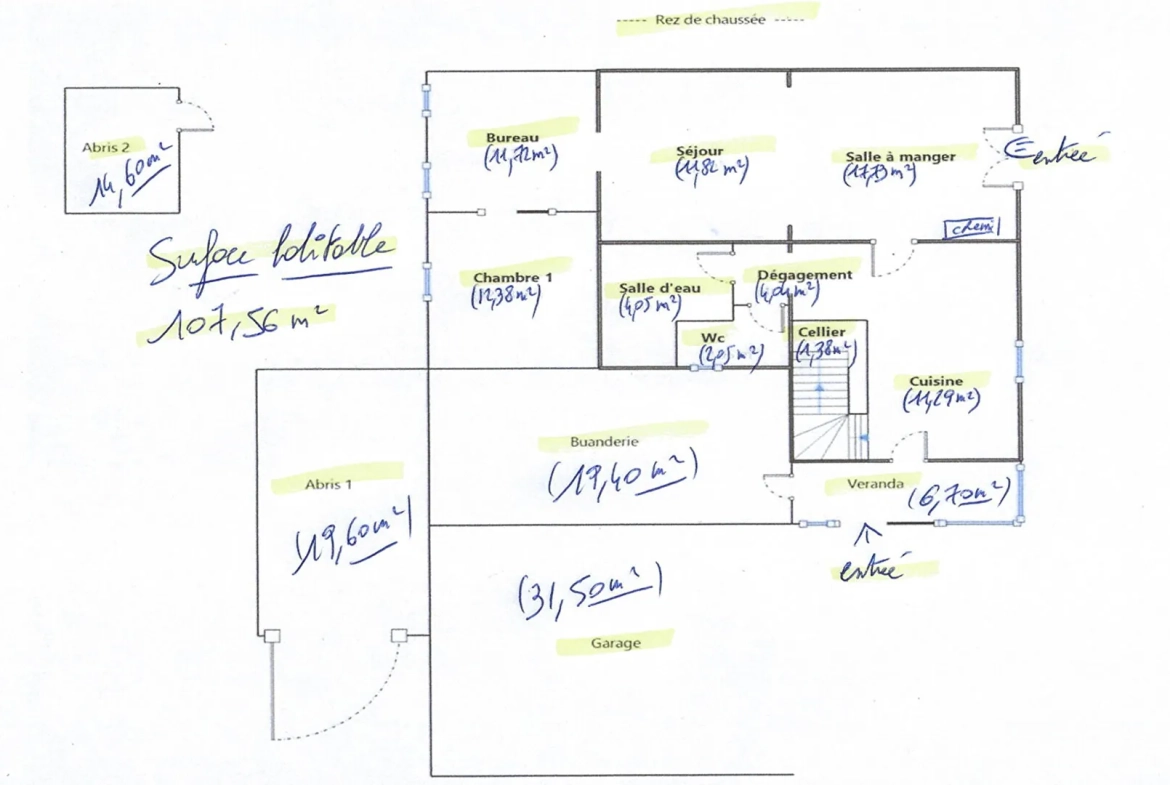 Rez de chaussée
Abris 2
14,60m²
Bureau
(11,72m²)
Séjour
(11,82 m²)
Salle à manger
(17,73m²)
entrée
chemi
Surface habitable
107,56 m²
Chambre 1
(12,38m²)
Salle d'eau
(4,05m²)
Dégagement
(4,04m²)
Wc
(2,05m²)
Cellier
(1,38m²)
Cuisine
(11,29m²)
Buanderie
(19,40m²)
Abris 1
(19,60m²)
Veranda
(6,70m²)
entrée
(31,50m²)
Garage